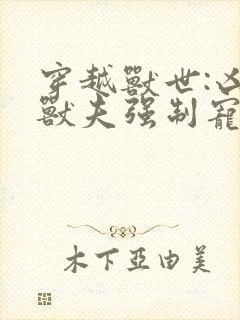 穿越獸世:凶
獸夫强制寵
木下亞由美